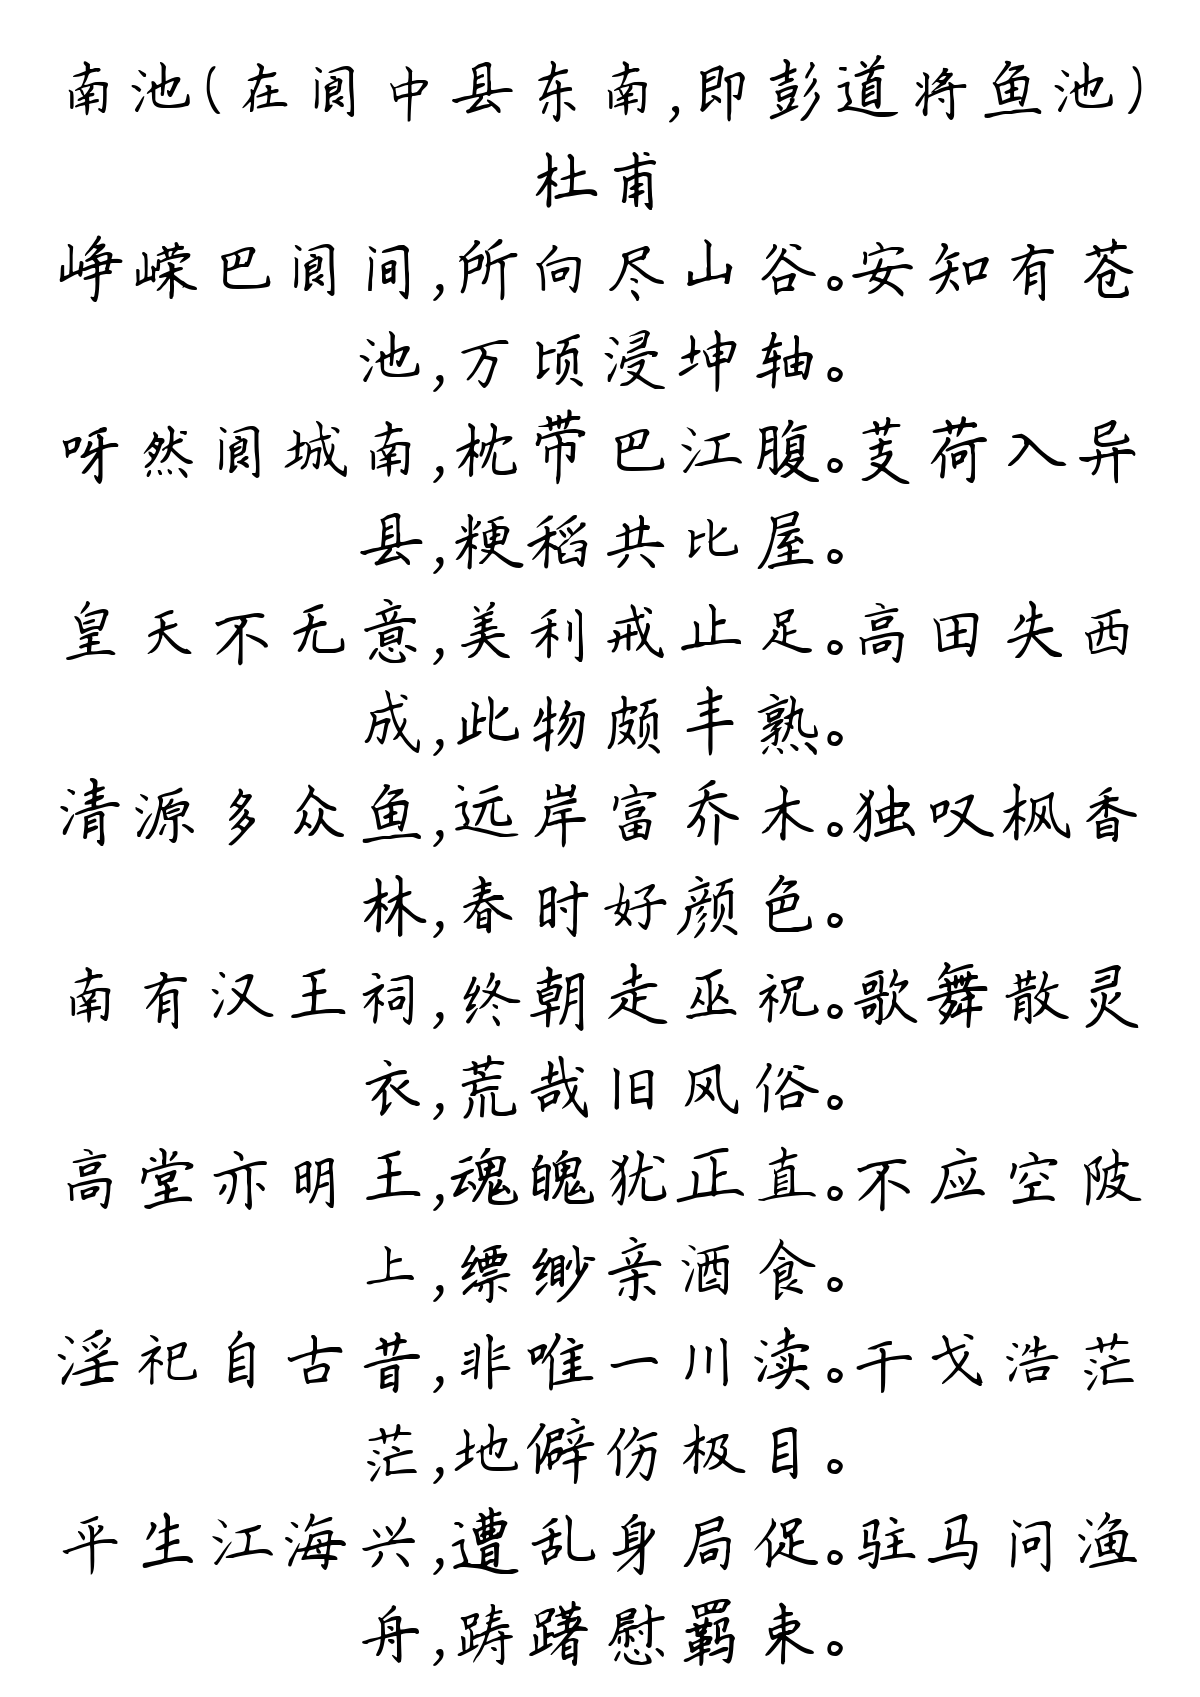 南池(在阆中县东南,即彭道将鱼池)
杜甫
峥嵘巴阆间,所向尽山谷。安知有苍
池,万顷浸坤轴。
呀然阆城南,枕带巴江腹。芰荷入异
县,粳稻共比屋。
皇天不无意,美利戒止足。高田失西
成,此物颇丰熟。
清源多众鱼,远岸富乔木。独叹枫香
林,春时好颜色。
南有汉王祠,终朝走巫祝。歌舞散灵
衣,荒哉旧风俗。
高堂亦明王,魂魄犹正直。不应空陂
上,缥缈亲酒食。
淫祀自古昔,非唯一川渎。干戈浩茫
茫,地僻伤极目。
平生江海兴,遭乱身局促。驻马问渔
舟,踌躇慰羁束。